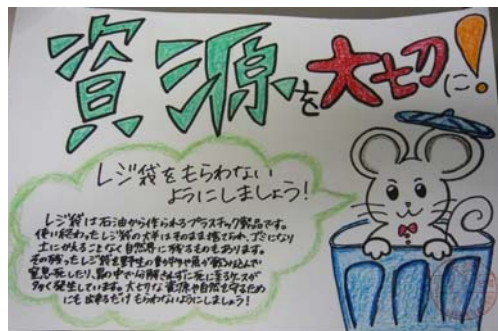 資源を大切に!
レジ袋をもらわない
ようにしましょう!
レジ袋は石油から作られるプラスチック製品です。
使い終わったレジ袋の大半はそのまま捨てられ、ゴミになり
土にかえることなく自然界に残るものもあります。
その残ったレジ袋を野生の動物や魚が飲み込んで
窒息死したり、胃の中で分解されずに死に至るケースが
多く発生しています。大切な資源や自然を守るため
にも出来るだけもらわないようにしましょう!